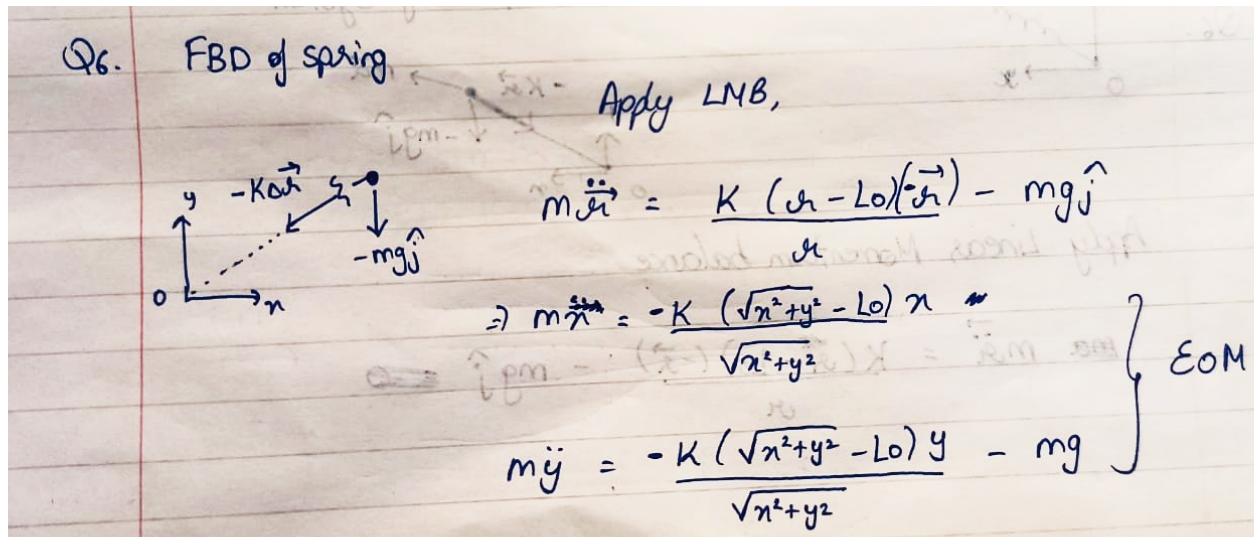 Q6. FBD of spring
Apply LMB,
y
-KΔr⃗
-mgĵ
O
x
m r̈⃗ = K (r - L0)(-r⃗) / r - mgĵ
⇒ mẍ = -K (√x²+y² - L0) x / √x²+y²
mÿ = -K (√x²+y² - L0) y / √x²+y² - mg
} EOM